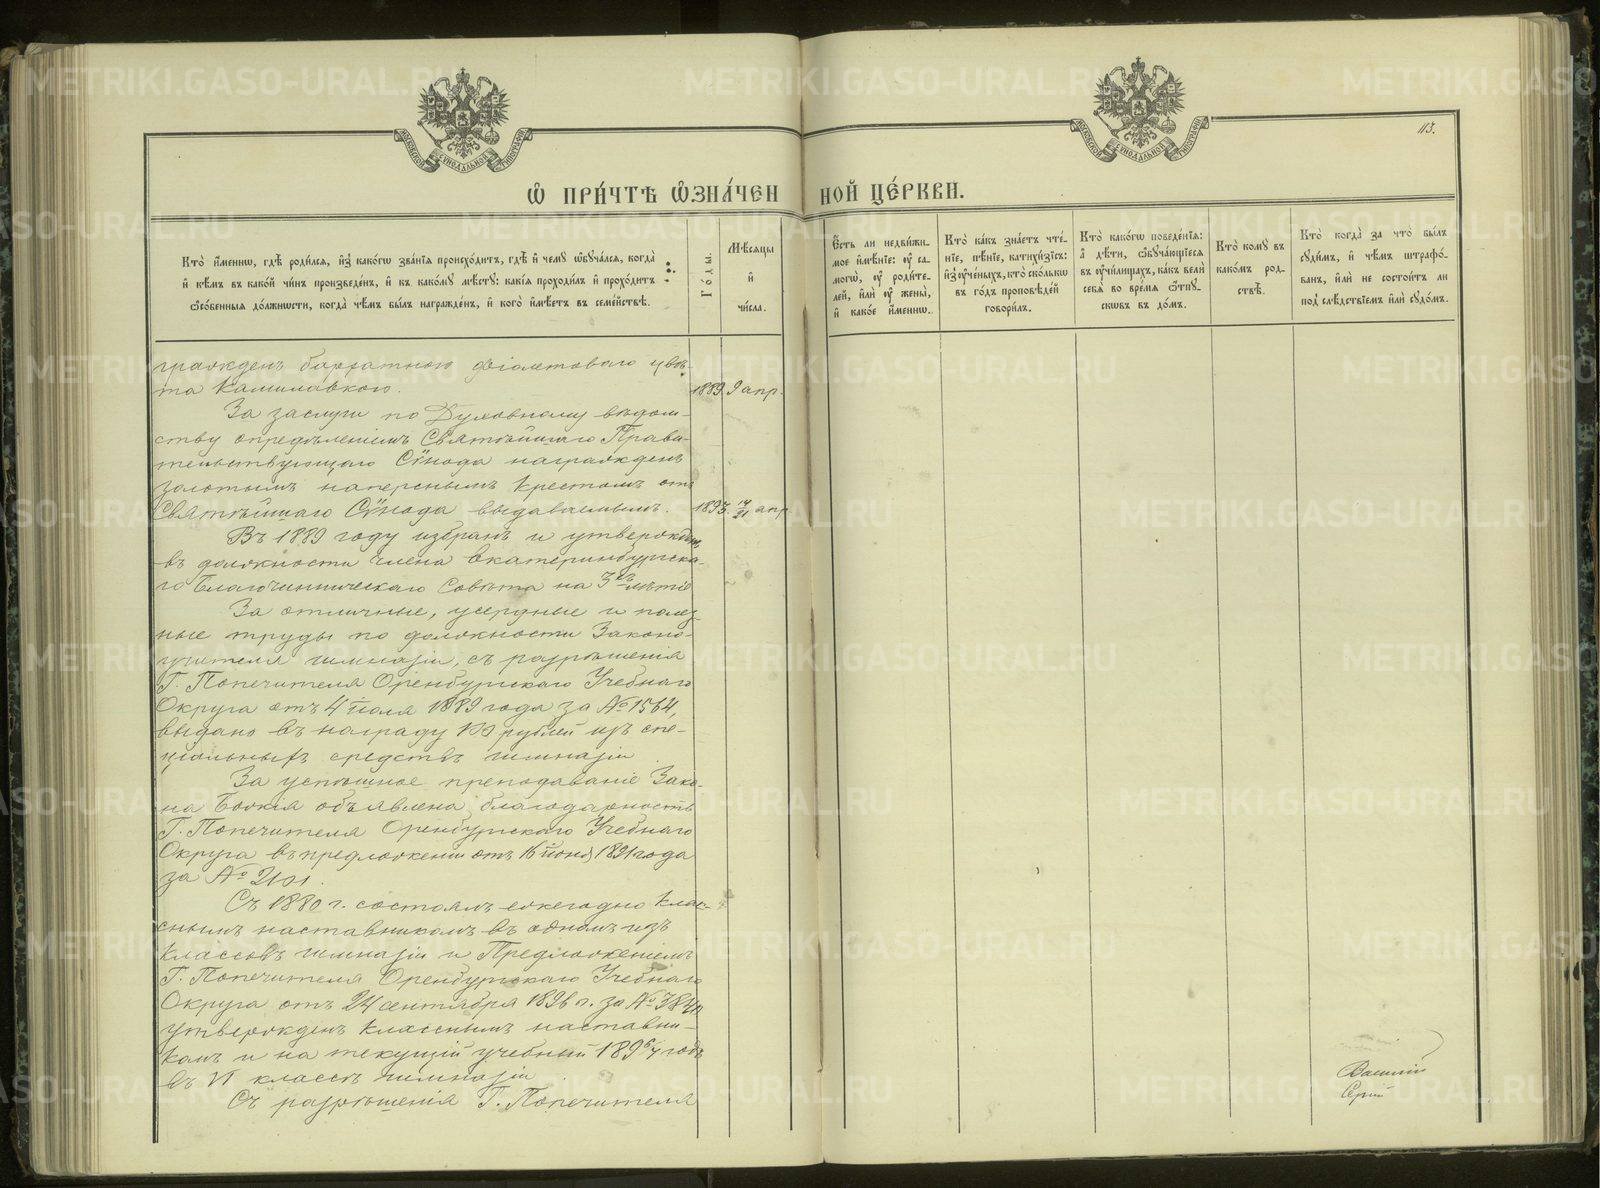 113.
МОСКОВСКОЙ СѴНОДАЛЬНОЙ ТИПОГРАФІИ
МОСКОВСКОЙ СѴНОДАЛЬНОЙ ТИПОГРАФІИ
Ѡ ПРИ́ЧТѢ Ѡ҆ЗНА́ЧЕННОЙ ЦЕ́РКВИ.
Кто̀ и҆́менно, гдѣ̀ роди́лсѧ, и҆з̾ како́гѡ зва́нїѧ происхо́дитъ, гдѣ̀ и҆ чемꙋ̀ ѡ҆бꙋча́лсѧ, когда̀
и҆ кѣ́мъ въ како́й чи́нъ произведе́нъ, и҆ къ како́мꙋ мѣ́стꙋ: какі̑ѧ проходи́лъ и҆ прохо́дитъ
ѡ҆со́бенныѧ до́лжности, когда̀ чѣ́мъ бы́лъ награжде́нъ, и҆ кого̀ и҆мѣ́етъ въ семе́йствѣ.
Го́ды.
Мѣ́сѧцы
и҆
чи́сла.
Є҆́сть ли недви́жи-
мое и҆мѣ́нїе: ᲂу҆ са-
могѡ̀, ᲂу҆ роди́те-
лей, и҆лѝ ᲂу҆ жены̀,
и҆ како́е и҆́менно.
Кто̀ ка́къ зна́етъ чте́-
нїе, пѣ́нїе, катихи́зїсъ:
и҆з̾ ᲂу҆че́ныхъ, кто̀ ско́лькѡ
въ го́дъ проповѣ́дей
говори́лъ.
Кто̀ како́гѡ поведе́нїѧ:
а҆ дѣ́ти, ѡ҆бꙋча́ющїесѧ
въ ᲂу҆чи́лищахъ, ка́къ велѝ
себѧ̀ во вре́мѧ ѿпꙋ-
сковъ въ до́мъ.
Кто̀ комꙋ̀ въ
како́мъ род-
ствѣ̀.
Кто̀ когда̀ за что̀ бы́лъ
сꙋди́мъ, и҆ чѣ́мъ штрафо́-
ванъ, и҆лѝ не состои́тъ ли
под̾ слѣ́дствїемъ и҆лѝ сꙋдо́мъ.
гражденъ бархатною фіолетоваго цвѣ-
та Камилавкою. 1889 9 апр.
За заслуги по Духовному вѣдом-
ству опредѣленіемъ Святѣйшаго Прави-
тельствующаго Сѵнода награжденъ
золотымъ наперснымъ Крестомъ отъ
Святѣйшаго Сѵнода выдаваемымъ. 1893. 14/21 апр
Въ 1889 году избранъ и утвержденъ
въ должности члена Екатеринбургска-
го Благочинническаго Совѣта на 3хъ лѣтіе
За отличные, усердные и полез-
ные труды по должности Законо-
учителя гимназіи, съ разрѣшенія
Г. Попечителя Оренбургскаго Учебнаго
Округа отъ 4 іюля 1889 года за № 1564,
выдано въ награду 100 рублей изъ спе-
ціальныхъ средствъ гимназіи
За успѣшное преподаваніе Зако-
на Божія объявлена благодарность
Г. Попечителя Оренбургскаго Учебнаго
Округа въ предложеніи отъ 16 іюня 1891 года
за № 2101.
Съ 1880 г. состоялъ ежегодно Клас-
снымъ наставникомъ въ одномъ изъ
классовъ гимназіи и Предложеніемъ
Г. Попечителя Оренбургскаго Учебнаго
Округа отъ 24 сентября 1896 г. за №
утвержденъ класснымъ наставни-
комъ и на текущій учебный 1896/7 годъ
въ VI классѣ гимназіи
Съ разрѣшенія Г. Попечителя
Василій
METRIKI.GASO-URAL.RU